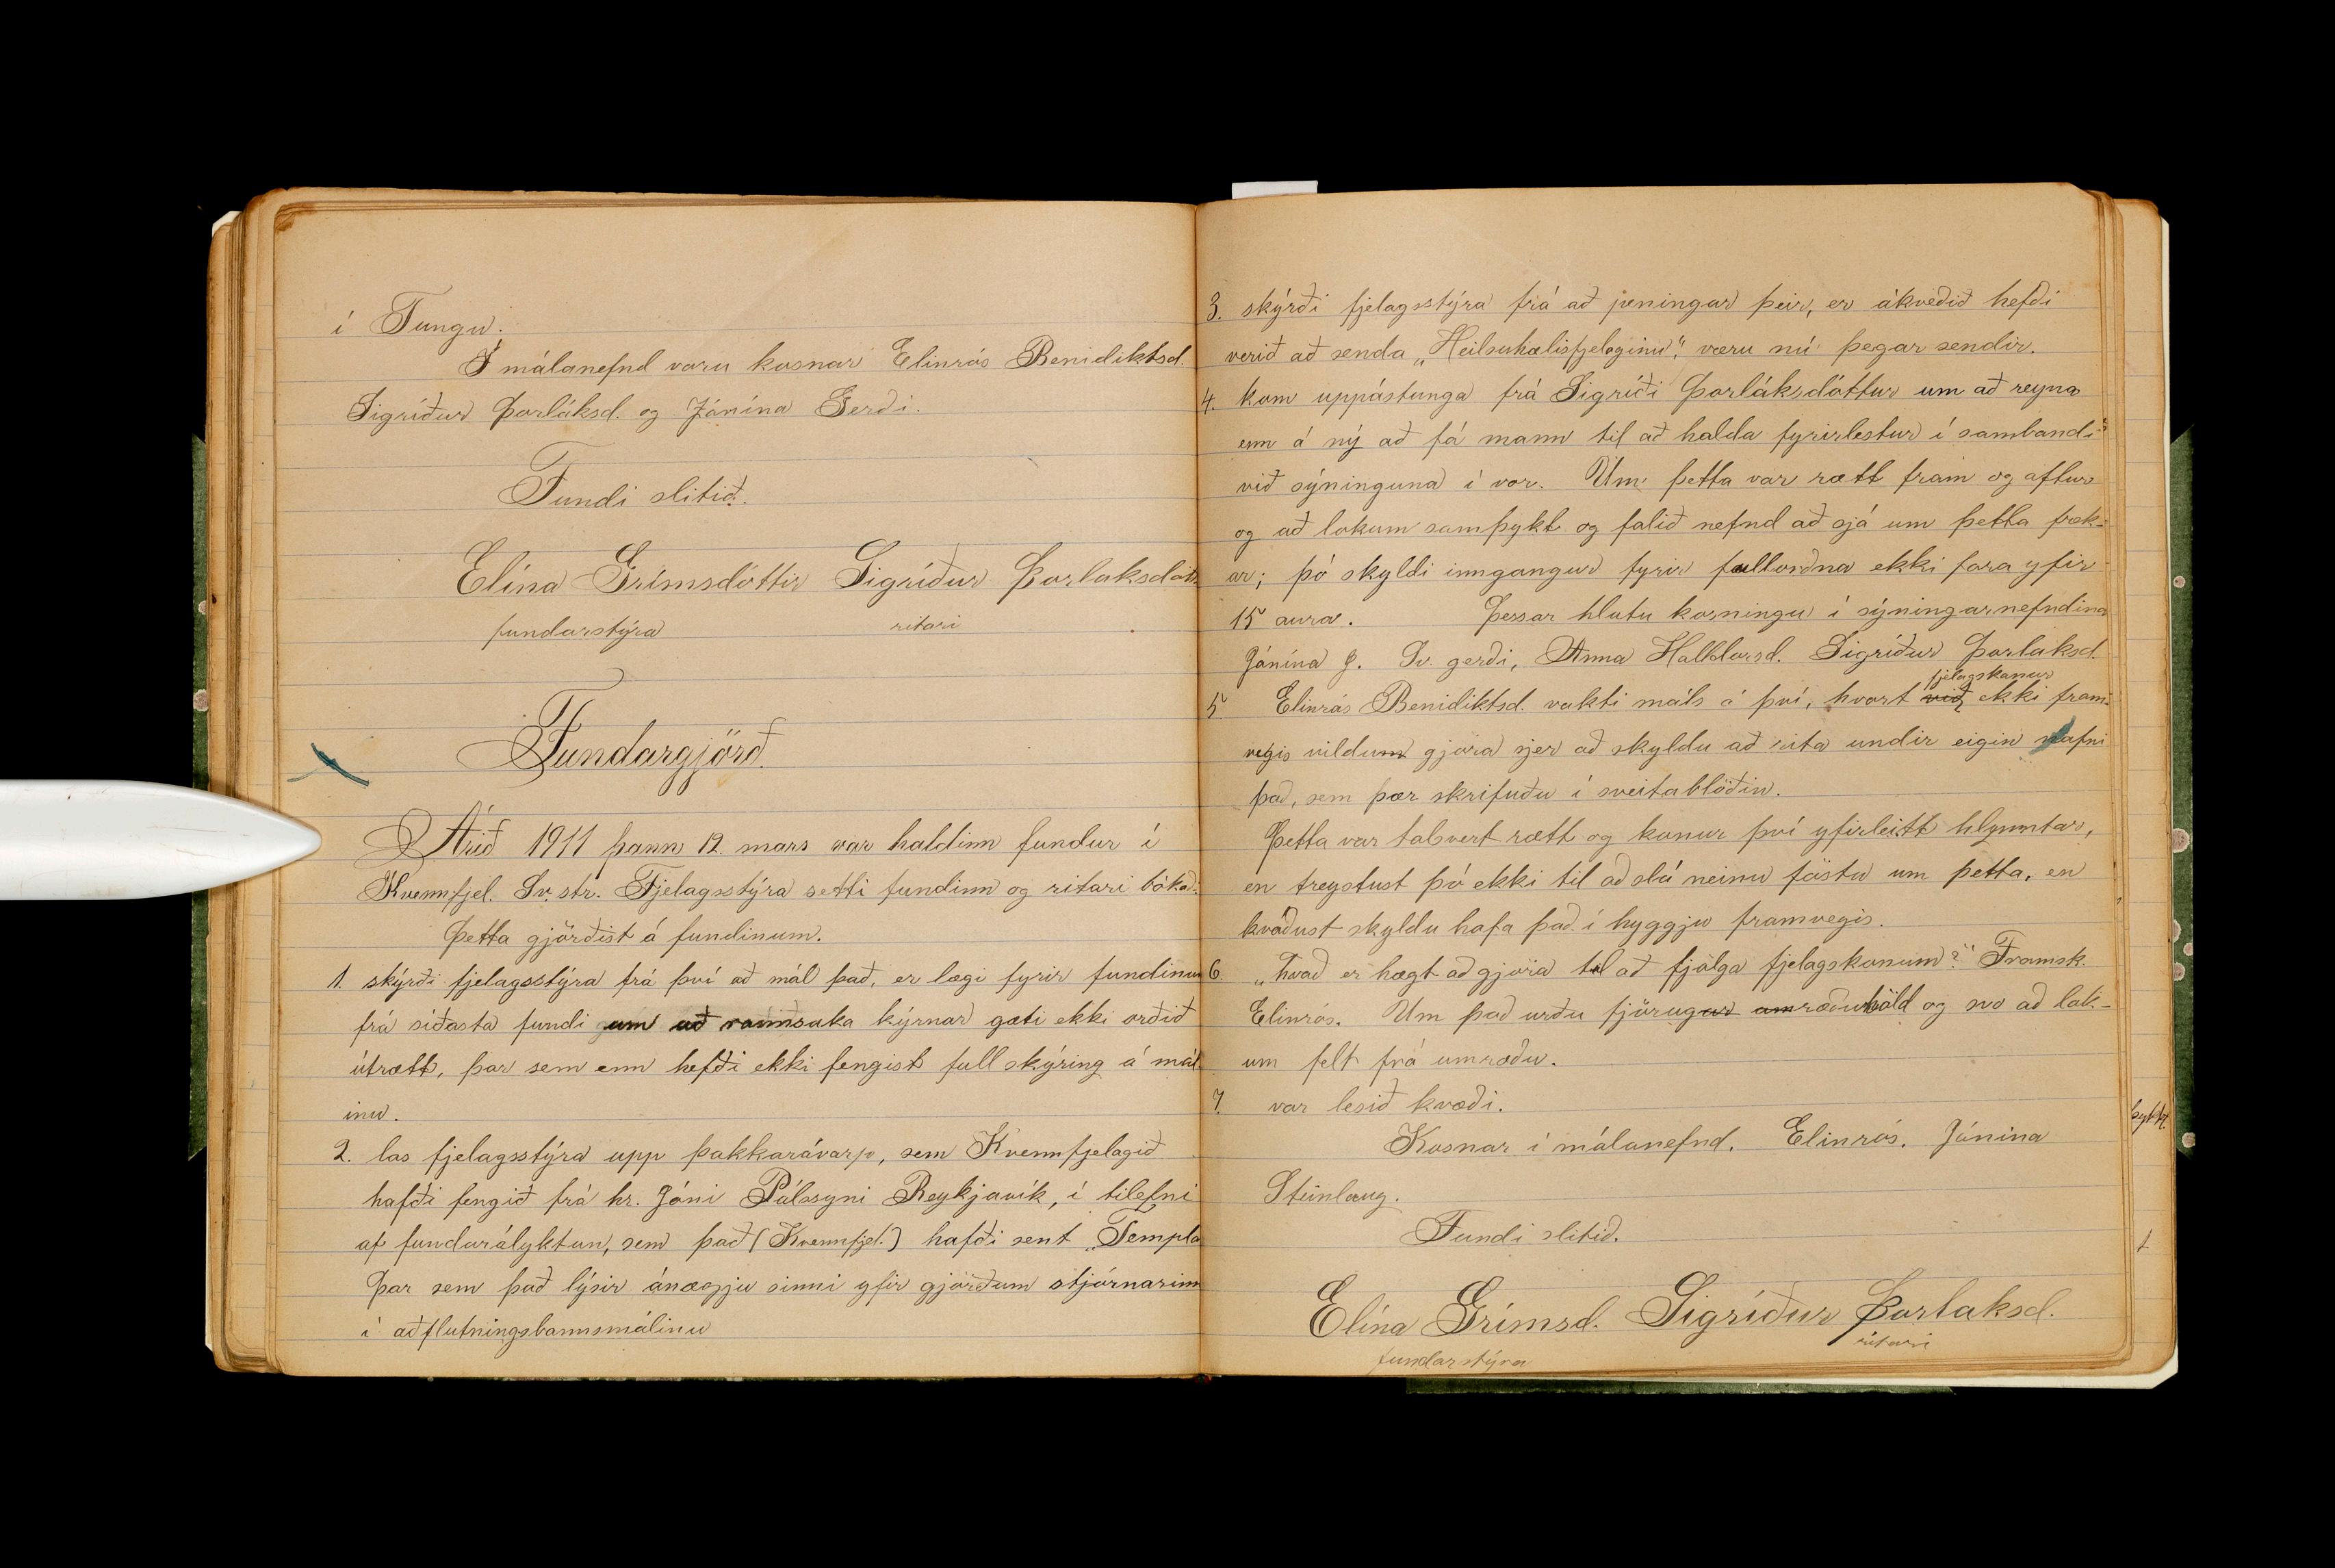 í Tungu.
Í málanefnd voru kosnar Elinrós Benidiktsd.
Sigríður Þorláksd. og Jónína Gerði.
Fundi slitið.
Elína Grímsdóttir Sigríður Þorlaksdótt
fundarstýra ritari
Fundargjörð.
Árið 1911 þann 12. mars var haldinn fundur í
Kvennfjel. Sv. str. Fjelagsstýra setti fundinn og ritari bókað.
Þetta gjörðist á fundinum.
1. skýrði fjelagsstýra frá því að mál það, er lægi fyrir fundinum
frá síðasta fundi um að rannsaka kýrnar gæti ekki orðið
útrætt, þar sem enn hefði ekki fengist full skýring á mál-
inu.
2. las fjelagsstýra upp þakkarávarp, sem Kvennfjelagið
hafði fengið frá hr. Jóni Pálssyni Reykjavík, í tilefni
af fundarályktun, sem það (Kvennfjel.) hafði sent „Templa
Þar sem það lýsir ánægju sinni yfir gjörðum stjórnarinn
í aðflutningsbannsmálinu
3. skýrði fjelagsstýra frá að peningar þeir, er ákveðið hefði
verið að senda „Heilsuhælisfjelaginu", væru nú þegar sendir.
4. kom uppástunga frá Sigríði Þorláksdóttur um að reyna
enn á ný að fá mann til að halda fyrirlestur í sambandi
við sýninguna í vor. Um þetta var rætt fram og aftur
og að lokum samþykt og falið nefnd að sjá um þetta frek-
ar; þó skyldi inngangur fyrir fullorðna ekki fara yfir
15 aura. Þessar hlutu kosningu í sýningarnefndina
Jónína J. Sv. gerði, Anna Halldorsd. Sigríður Þorlaksd.
fjelagskonur
5. Elinrós Benidiktsd. vakti máls á því, hvort við ekki fram-
vegis vildum gjöra sjer að skyldu að rita undir eigin nafni
það, sem þær skrifuðu í sveitablöðin.
Þetta var talsvert rætt og konur því yfirleitt hlynntar,
en treystust þó ekki til að slá neinu föstu um þetta, en
kváðust skyldu hafa það í hyggju framvegis.
6. „hvað er hægt að gjöra til að fjölga fjelagskonum?" Framsk.
Elinrós. Um það urðu fjörugar umræðuhöld og svo að lok-
um felt frá umræðu.
7. var lesið kvæði.
Kosnar í málanefnd. Elinrós. Jónina
Steinlaug.
Fundi slitið.
Elína Grímsd. Sigríður Þorlaksd.
fundarstýra ritari
þykkt